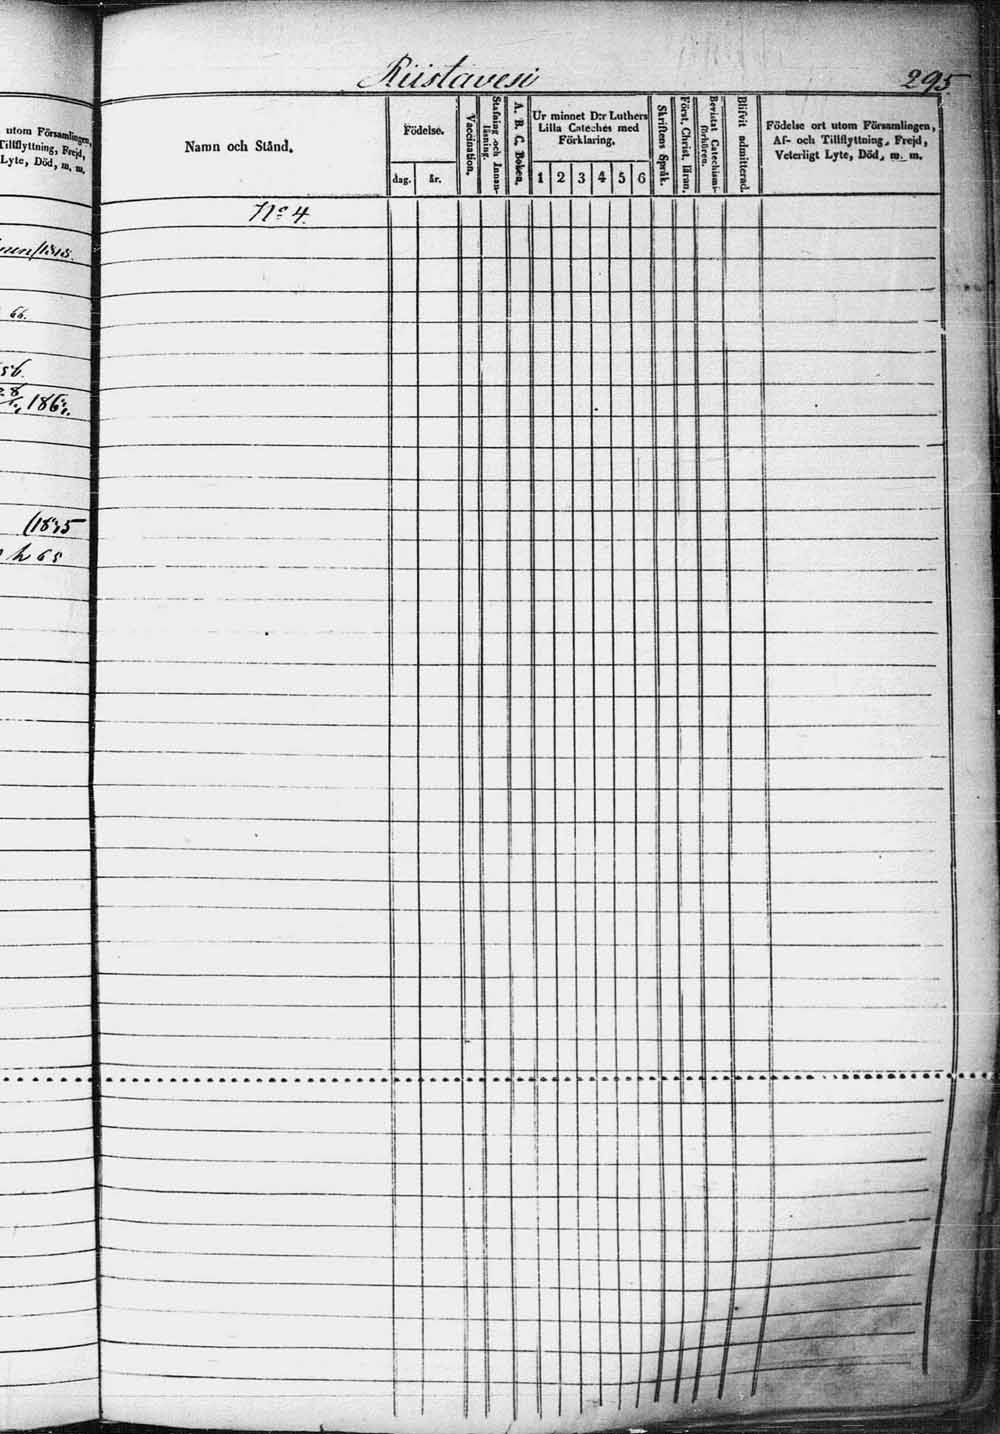 Riistavesi
295
utom Församlingen,
Tillflyttning, Frejd,
Lyte, Död, m. m.
Namn och Stånd.
Födelse.
dag.
år.
Vaccination.
Stafning och Innan-
läsning.
A. B. C. Boken.
Ur minnet D:r Luthers
Lilla Cateches med
Förklaring.
1 2 3 4 5 6
Skriftens Språk.
Först. Christ. läran.
Bevistat Catechismi-
förhören.
Blifvit admitterad.
Födelse ort utom Församlingen,
Af- och Tillflyttning, Frejd,
Veterligt Lyte, Död, m. m.
No 4.
66.
56.
h 65